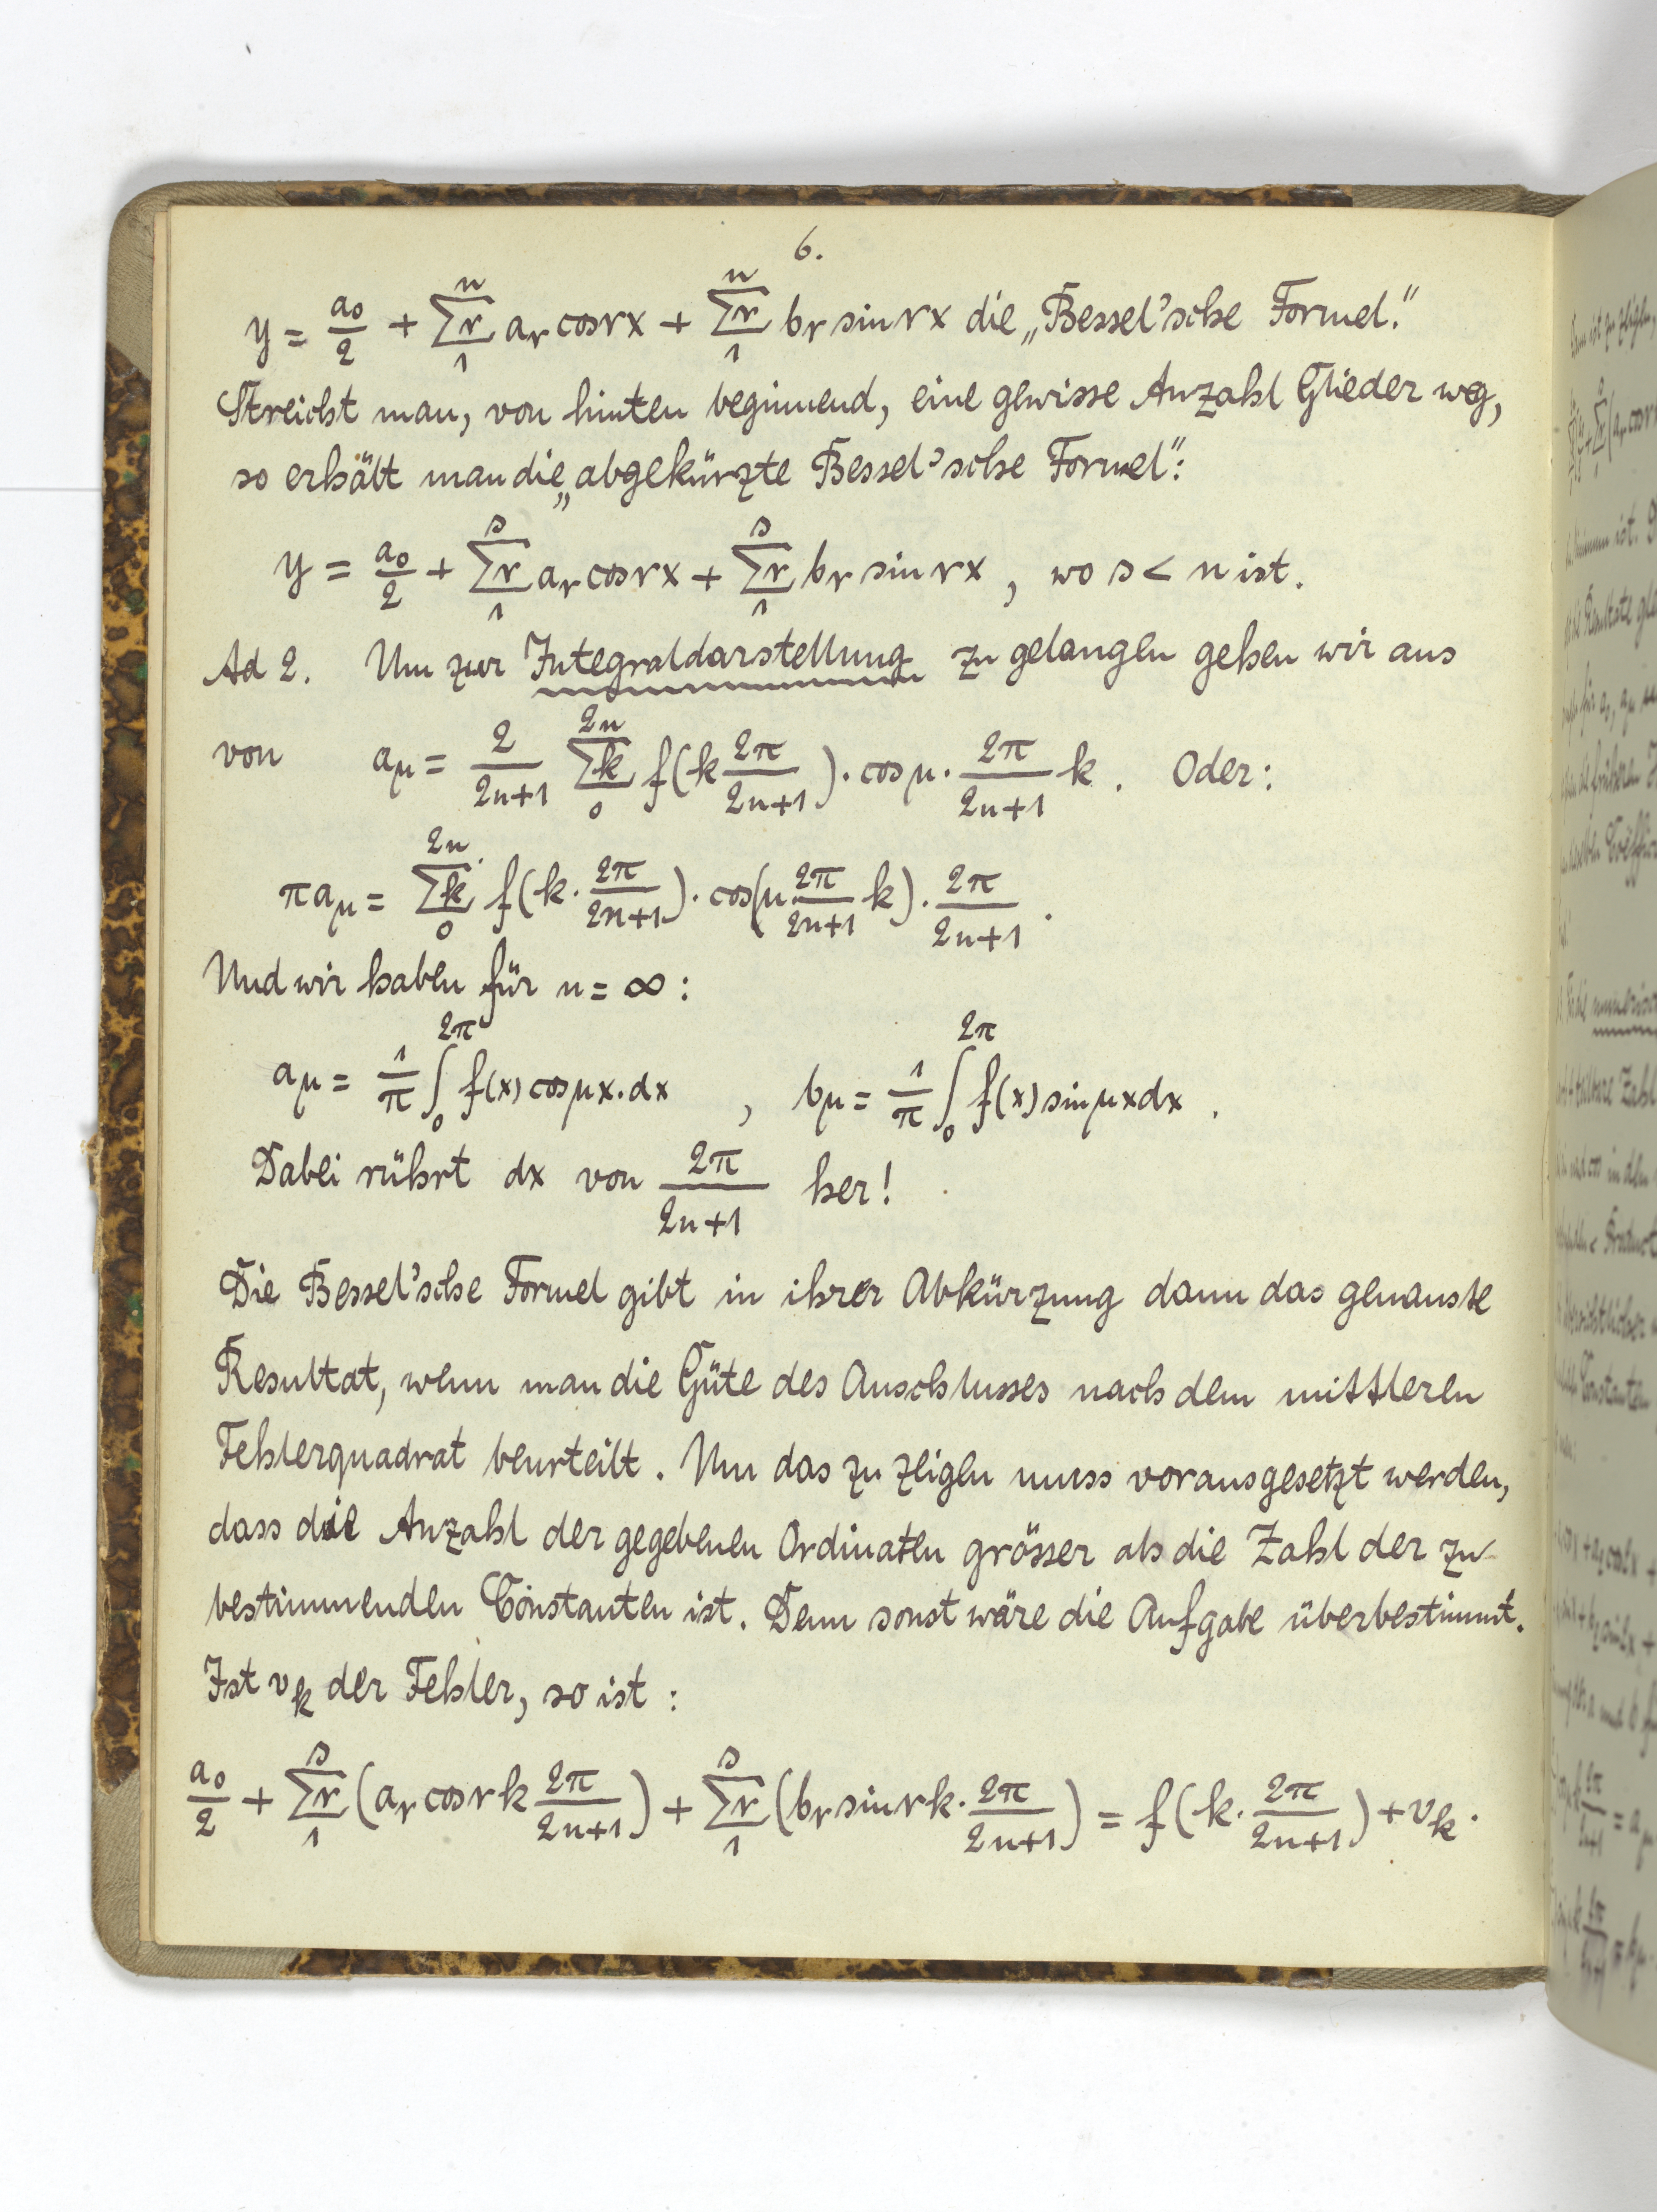 6.
y = a₀/2 + Σᵣ₁ⁿ aᵣ cos rx + Σᵣ₁ⁿ bᵣ sin rx die „Bessel'sche Formel."
Streicht man, von hinten beginnend, eine gewisse Anzahl Glieder weg,
so erhält man die „abgekürzte Bessel'sche Formel":
y = a₀/2 + Σᵣ₁ˢ aᵣ cos rx + Σᵣ₁ˢ bᵣ sin rx , wo s < n ist.
Ad 2. Um zur Integraldarstellung zu gelangen gehen wir aus
von a_μ = 2/(2n+1) Σₖ₀²ⁿ f(k 2π/(2n+1)) · cos μ · 2π/(2n+1) k . Oder:
π a_μ = Σₖ₀²ⁿ f(k · 2π/(2n+1)) · cos(μ 2π/(2n+1) k) · 2π/(2n+1) .
Und wir haben für n = ∞ :
a_μ = 1/π ∫₀^2π f(x) cos μx · dx , b_μ = 1/π ∫₀^2π f(x) sin μx dx .
Dabei rührt dx von 2π/(2n+1) her!
Die Bessel'sche Formel gibt in ihrer Abkürzung dann das genauste
Resultat, wenn man die Güte des Anschlusses nach dem mittleren
Fehlerquadrat beurteilt. Um das zu zeigen muss vorausgesetzt werden,
dass die Anzahl der gegebenen Ordinaten grösser als die Zahl der zu
bestimmenden Constanten ist. Denn sonst wäre die Aufgabe überbestimmt.
Ist vₖ der Fehler, so ist :
a₀/2 + Σᵣ₁ˢ (aᵣ cos rk 2π/(2n+1)) + Σᵣ₁ˢ (bᵣ sin rk · 2π/(2n+1)) = f(k · 2π/(2n+1)) + vₖ .